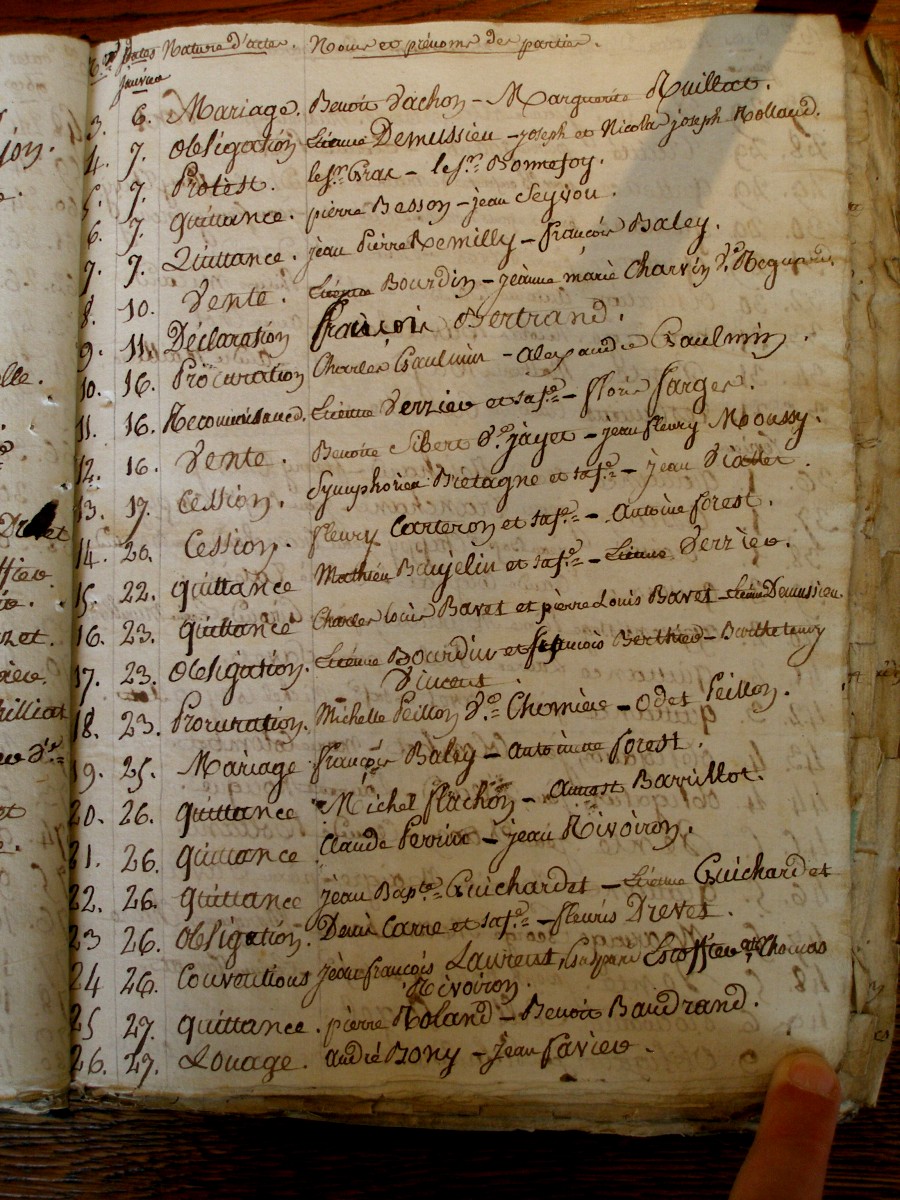 Nos Dates Nature d'actes. Noms et prénoms des parties.
janvier
3. 6. Mariage. Benoit Vachon - Marguerite Ruillat.
4. 7. Obligation Etienne Demussieu - joseph et Nicolas joseph Rolland.
5. 7. Protest. le sr. Gras - le sr. Bonnefoy.
6. 7. Quittance. pierre Besson - jean Seyvou.
7. 7. Quittance. jean Pierre Remilly - françois Baley.
8. 10. Vente. Etienne Bourdin - jeanne marie Charvin Ve.
9. 11. Déclaration françois Bertrand.
10. 16. Procuration Charles Gaulmin - alexandre Gaulmin.
11. 16. Reconnaissance. Etienne Verrier et sa fe. - floris farges.
12. 16. Vente. Benoite Sibert Ve. jayet - jean fleury Moussy.
13. 17. Cession. Symphorien Bretagne et sa fe. - jean Viallet.
14. 20. Cession. fleury Carteron et sa fe. - Antoine forest.
15. 22. quittance Mathieu Baujelin et sa fe. - Etienne Verrier.
16. 23. quittance Charles louis Bavet et pierre Louis Bavet - Etienne Demussieu.
17. 23. Obligation. Etienne Bourdin et françois Berthier - Barthelemy
Vincent.
18. 23. Procuration. Michelle Peillon Ve. Chemière - Odet Peillon.
19. 25. Mariage françois Baley - antoinette forest.
20. 26. quittance Michel flachon - Barrillot.
21. 26. quittance Claude Perrin - jean Rivoiron.
22. 26. quittance jean Bapte. Guichardet - Etienne Guichardet
23 26. Obligation. Denis Carre et sa fe. - fleuris Drevet.
24 26. Conventions jean françois Laurent, Escoffier et Thomas
Rivoiron.
25 27. quittance. pierre Roland - Benoit Baudrand.
26. 27. Louage. andré Bony - Jean favier.